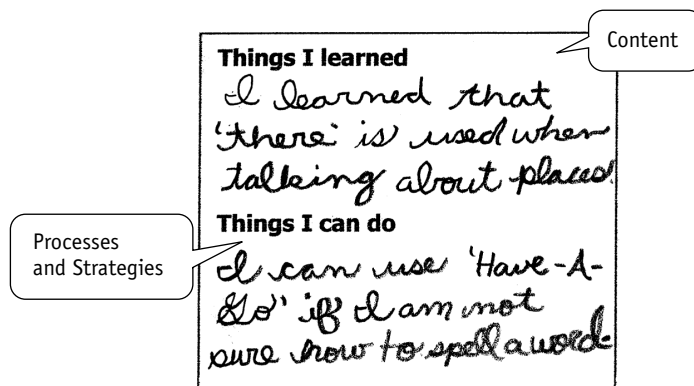 Content
Things I learned
I learned that
'there' is used when
talking about places.
Processes
and Strategies
Things I can do
I can use 'Have-A-
Go' if I am not
sure how to spell a word.